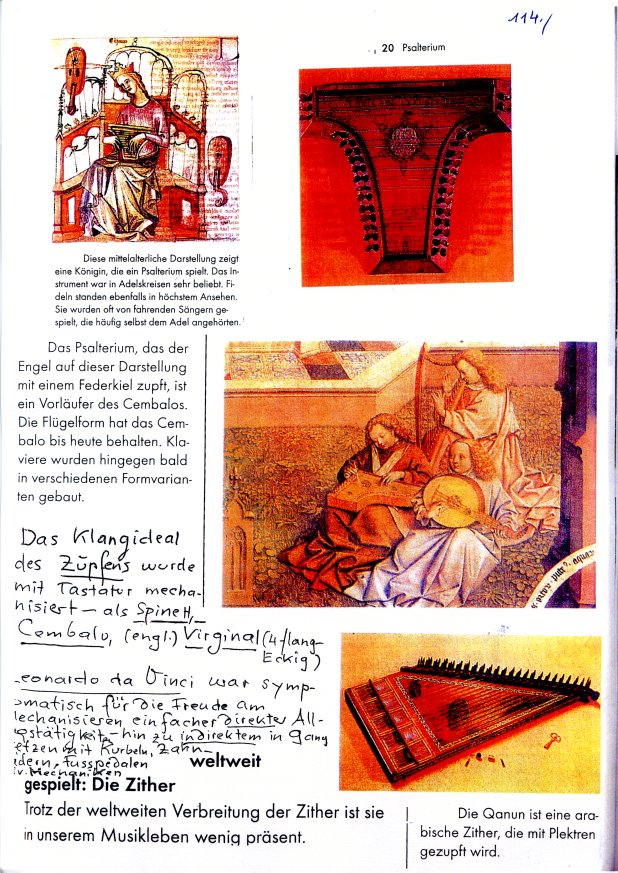 114./
20 Psalterium
Diese mittelalterliche Darstellung zeigt
eine Königin, die ein Psalterium spielt. Das In-
strument war in Adelskreisen sehr beliebt. Fi-
deln standen ebenfalls in höchstem Ansehen.
Sie wurden oft von fahrenden Sängern ge-
spielt, die häufig selbst dem Adel angehörten.
Das Psalterium, das der
Engel auf dieser Darstellung
mit einem Federkiel zupft, ist
ein Vorläufer des Cembalos.
Die Flügelform hat das Cem-
balo bis heute behalten. Kla-
viere wurden hingegen bald
in verschiedenen Formvarian-
ten gebaut.
Das Klangideal
des Zupfens wurde
mit Tastatur mecha-
nisiert – als Spinett,
Cembalo, (engl.) Virginal (4flang-
Eckig)
eonardo da Vinci war symp-
omatisch für die Freude am
echanisieren einfacher direkter All-
gstätigkeit – hin zu indirektem in Gang
etzen mit Kurbeln, Zahn-
dern, Fusspedalen
v. Mechaniken
weltweit
gespielt: Die Zither
Trotz der weltweiten Verbreitung der Zither ist sie
in unserem Musikleben wenig präsent.
Die Qanun ist eine ara-
bische Zither, die mit Plektren
gezupft wird.